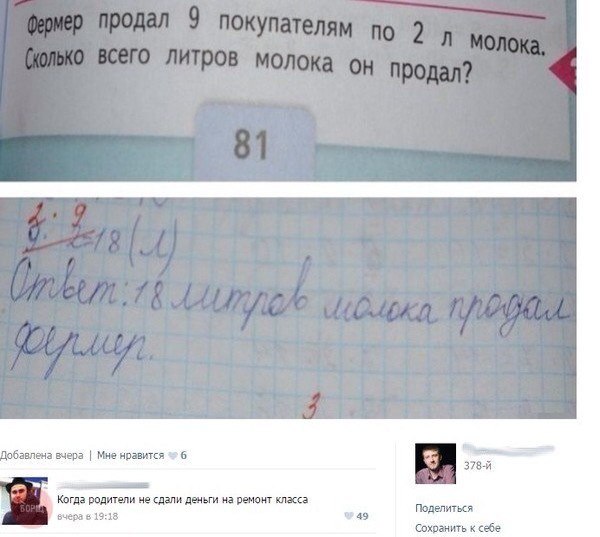 Фермер продал 9 покупателям по 2 л молока.
Сколько всего литров молока он продал?
81
2 · 9
9 · 2=18 (л)
Ответ: 18 литров молока продал
фермер.
3
Добавлена вчера | Мне нравится 6
378-й
Когда родители не сдали деньги на ремонт класса
вчера в 19:18
49
Поделиться
Сохранить к себе